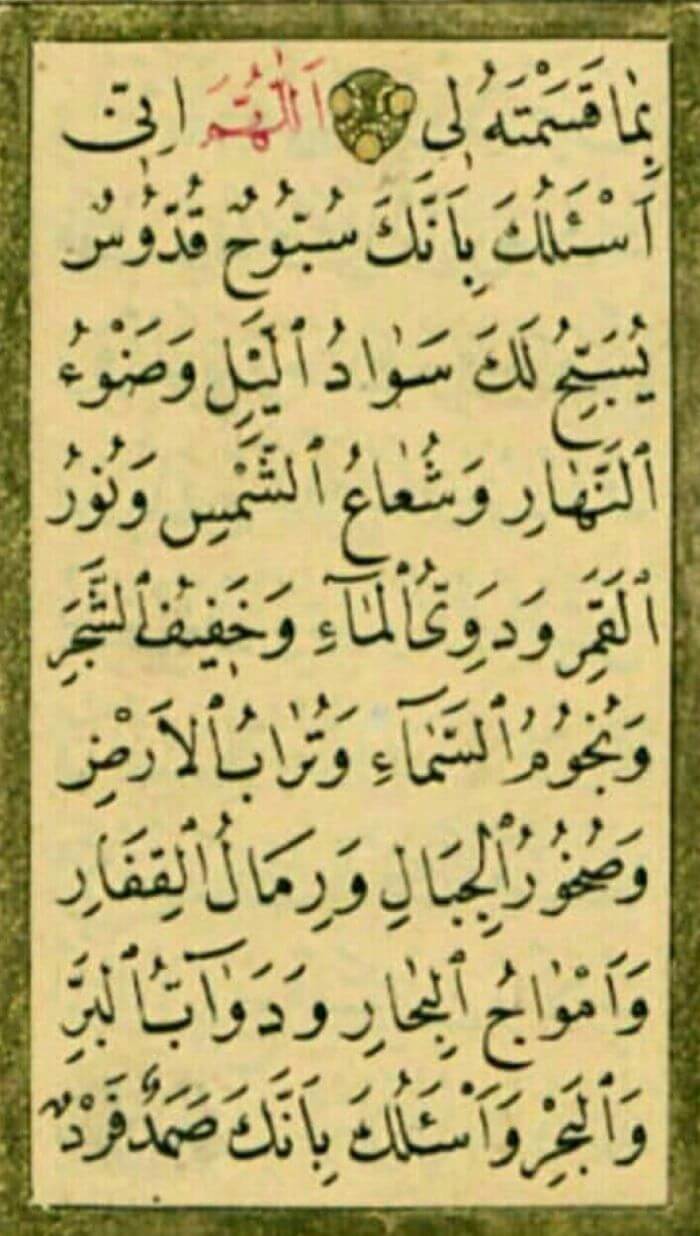 بِمٰا قَسَمْتَهُ لٖى اَللّٰهُمَّ اِنّٖى
أَسْئَلُكَ بِاَنَّكَ سُبّٗوحٌ قُدّٗوسٌ
يُسَبِّحُ لَكَ سَوٰادُ ٱللَّيْلِ وَضَوْءُ
ٱلنَّهٰارِ وَشُعٰاعُ ٱلشَّمْسِ وَنُورُ
ٱلْقَمَرِ وَدَوِىُّ ٱلْمٰآءِ وَخَفٖيفُ ٱلشَّجَرِ
وَنُجُومُ ٱلسَّمٰآءِ وَتُرٰابُ ٱلاَرْضِ
وَصُخُورُ ٱلْجِبَالِ وَرِمَالُ ٱلْقِفَارِ
وَاَمْوٰاجُ ٱلْبِحٰارِ وَدَوٰآبُّ ٱلْبَرِّ
وَٱلْبَحْرِ وَاَسْئَلُكَ بِاَنَّكَ صَمَدٌ فَرْدٌ